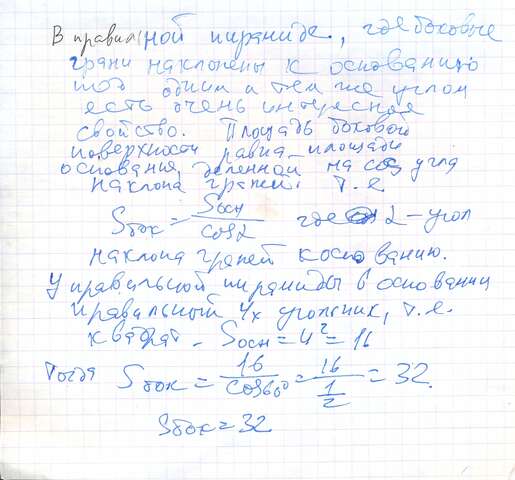 В правильной пирамиде, где боковые
грани наклонены к основанию
под одним и тем же углом
есть очень интересное
свойство. Площадь боковой
поверхности равна площади
основания, деленной на cos угла
наклона граней. т.е
Sбок = Sосн / cos α где α - угол
наклона граней к основанию.
У правильной пирамиды в основании
правильный 4х угольник, т.е.
квадрат. Sосн = 4² = 16
Тогда Sбок = 16 / cos 60° = 16 / (1/2) = 32.
Sбок = 32